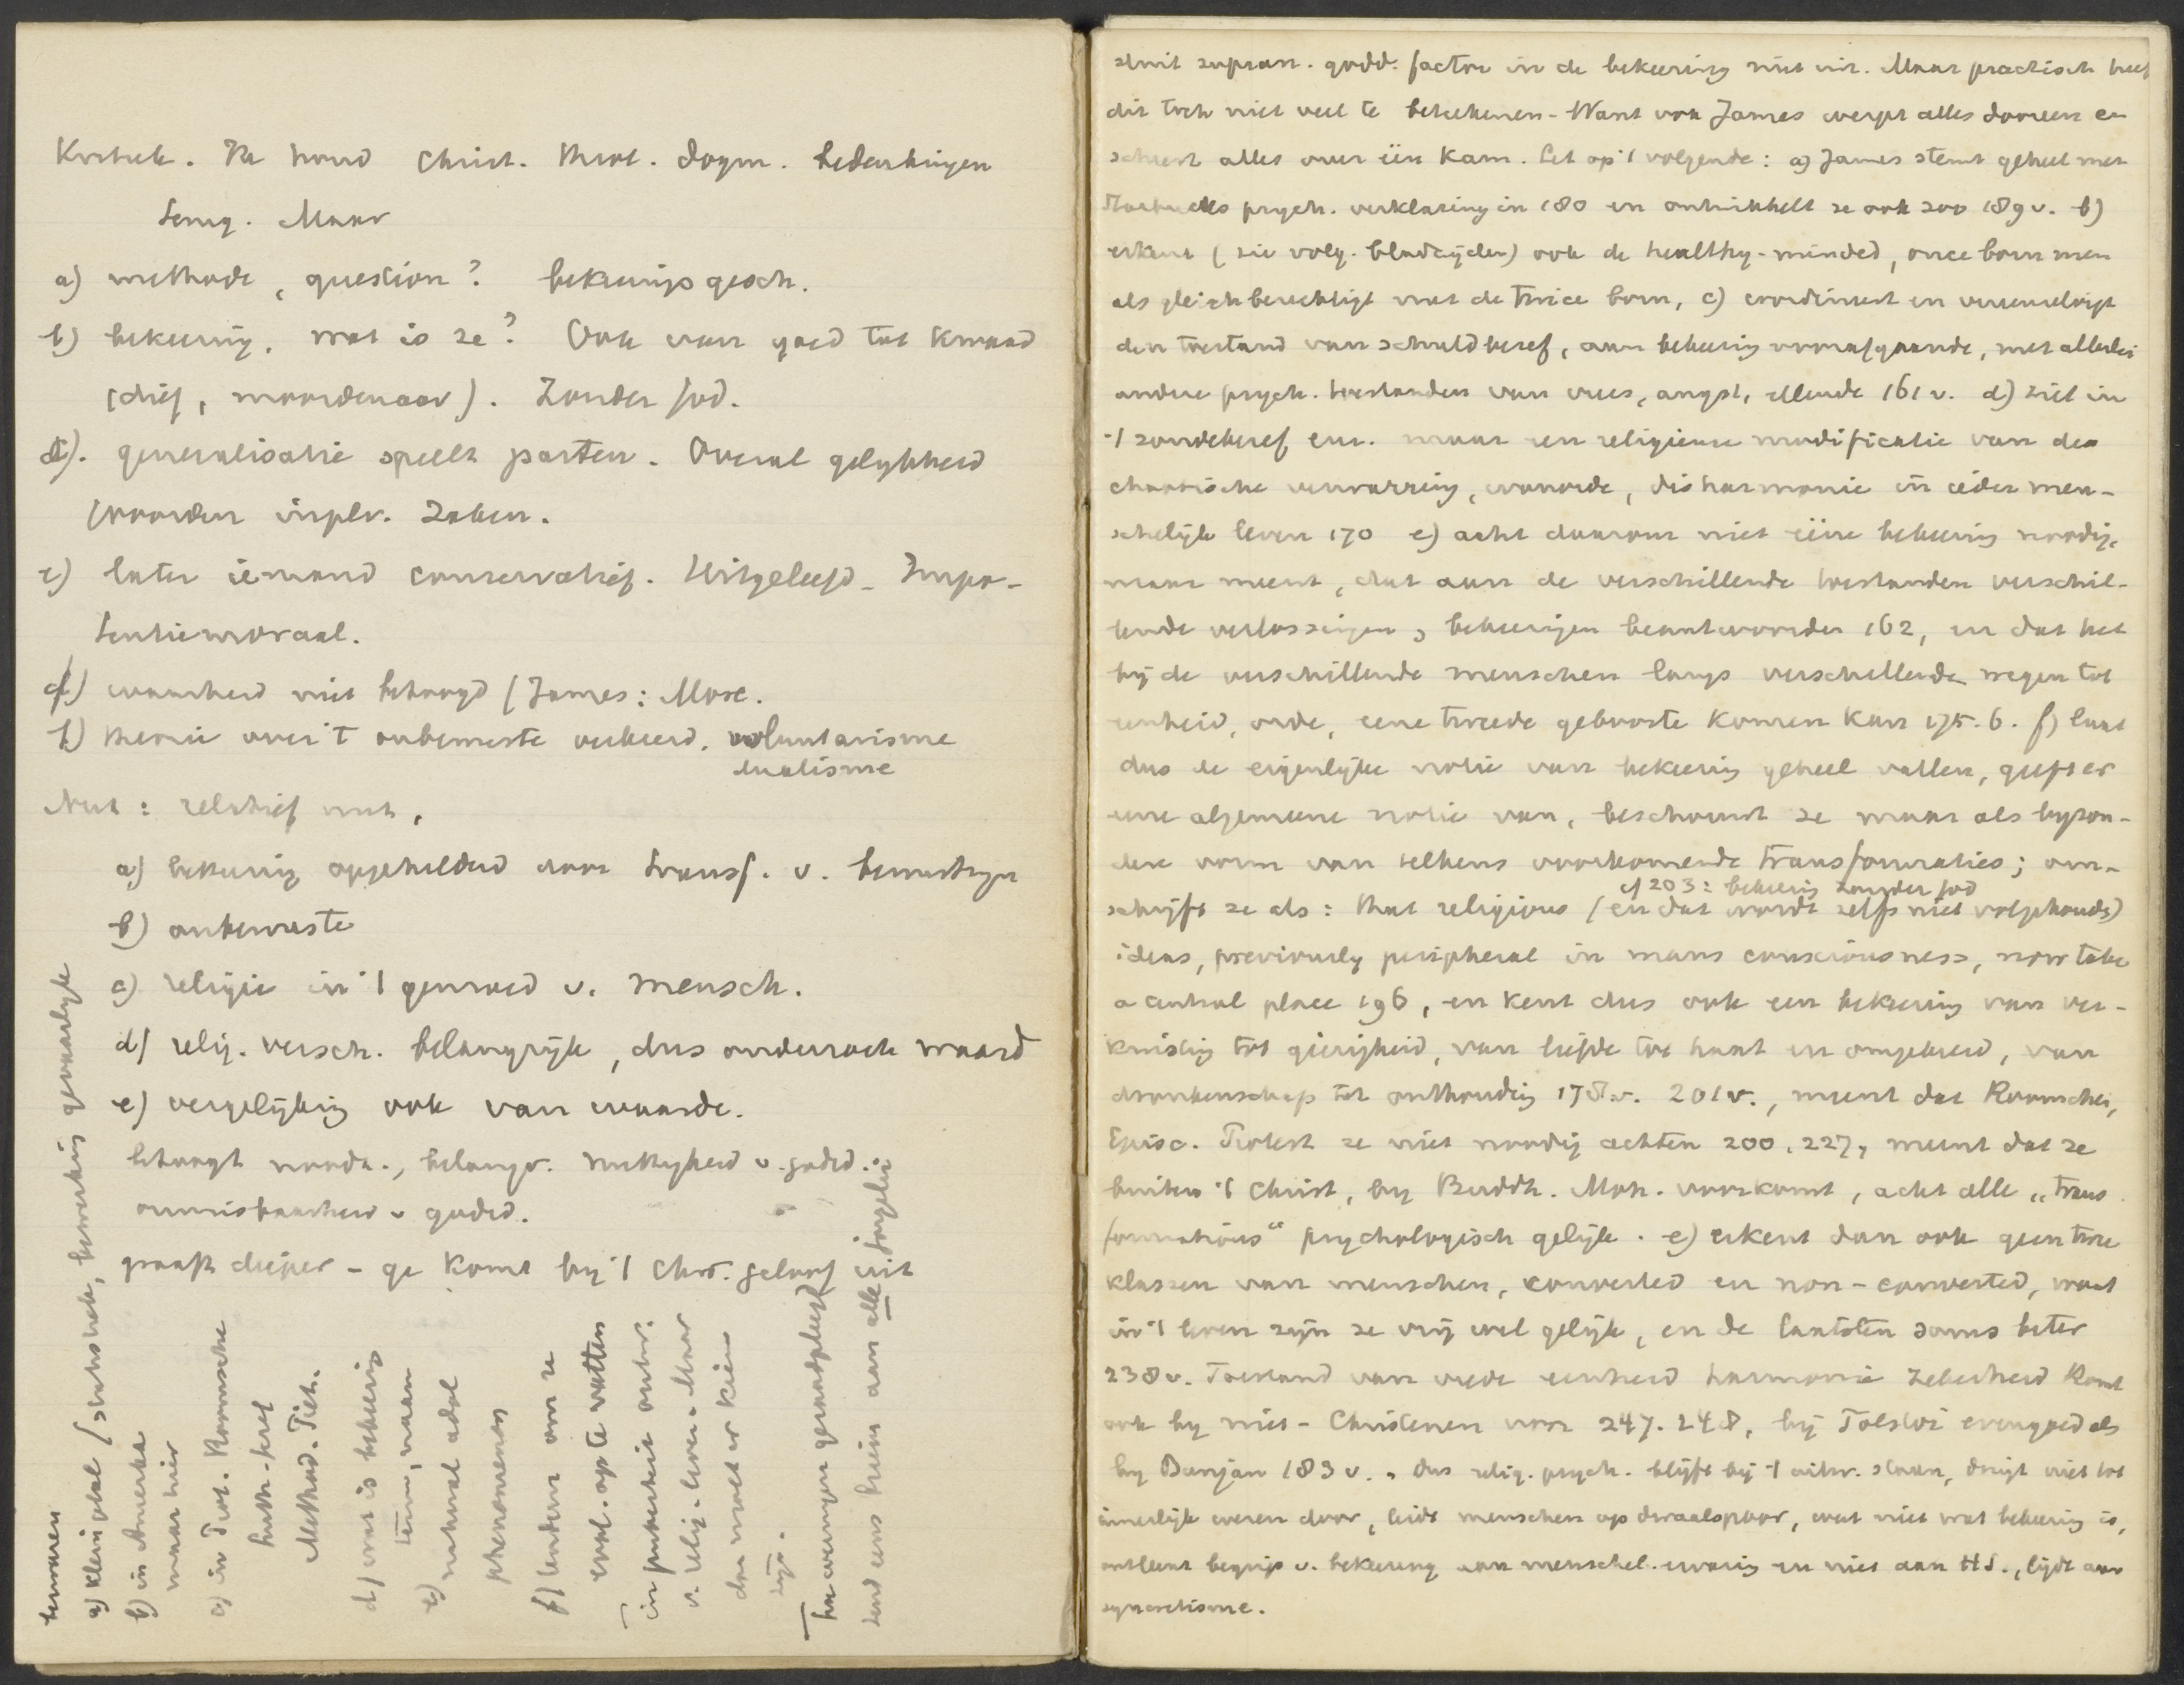 Kritiek. Ik houd Christ. Theol. dogm. bedenkingen
terug. Maar
a) methode, question? bekeeringsgesch.
b) bekeering, wat is ze? Ook van goed tot kwaad
(dief, moordenaar). Zonder God.
d). generalisatie speelt parten. Overal gelijkheid
(woorden in plv. zaken.
e) later iemand conservatief. Uitgeleefd - Impo-
tentiemoraal.
f) waarheid niet betoogd (James: More.
f) theorie over 't onbewuste verkeerd. voluntarisme
dualisme
Nut: relatief nut,
a) bekeering opgehelderd door transf. v. bewustzijn
b) onbewuste
c) religie in 't gemoed v. mensch.
d) relig. versch. belangrijk, dus onderzoek waard
e) vergelijking ook van waarde.
betoogt noodz., belangr. nuttigheid v. godsd.
onmisbaarheid v godsd.
graaft dieper - ge komt bij 't Chr. geloof uit
bezwaren
a) klein getal (statistiek, bewerking gevaarlijk
b) in Amerika
maar hier
c) in Prot. Roomsche
Luth. - Gref
Method. Piet.
d) wat is bekeering
term, naam
e) natural adol
phenomenon
f) leidend om ze
evol. op te vatten
in puberteit ontw.
v. relig. leven. Maar
dan moet er kiem
zijn.
sluit supran. godd. factor in de bekeering niet uit. Maar practisch heeft
dit toch niet veel te beteekenen - Want ook James werpt alles dooreen en
scheert alles over één kam. Let op 't volgende: a) James stemt geheel met
Starbucks psych. verklaring in 180 en ontwikkelt ze ook zoo 189 v. b)
erkent (zie volg. bladzijden) ook de healthy-minded, once born men
als gleichberechtigt met de twice born, c) coordineert en vereenzelvigt
den toestand van schuldbesef, aan bekeering voorafgaande, met allerlei
andere psych. toestanden van vrees, angst, ellende 161 v. d) ziet in
't zondebesef enz. maar een religieuse modificatie van de
chaotische verwarring, wanorde, disharmonie in ieder men-
schelijk leven 170 e) acht daarom niet ééne bekeering noodig,
maar meent, dat aan de verschillende toestanden verschil-
lende verlossingen, bekeeringen beantwoorden 162, en dat het
bij de verschillende menschen langs verschillende wegen tot
eenheid, orde, eene tweede geboorte komen kan 175.6. f) laat
dus de eigenlijke notie van bekeering geheel vallen, geeft er
eene algemeene notie van, beschouwt ze maar als byzon-
dere vorm van telkens voorkomende transformaties; om-
cf 203: bekeering zonder God
schrijft ze als: that religious (en dat wordt zelfs niet volgehouden)
ideas, previously peripheral in mans consciousness, now take
a central place 196, en kent dus ook een bekeering van ver-
kwisting tot gierigheid, van liefde tot haat en omgekeerd, van
dronkenschap tot onthouding 178 v. 201 v., meent dat Roomschen,
Episc. Protest ze niet noodig achten 200, 227, meent dat ze
buiten 't Christ, by Buddh. Moh. voorkomt, acht alle „trans
formations“ psychologisch gelijk. e) erkent dan ook geen twee
klassen van menschen, converted en non-converted, want
in 't leven zijn ze vrij wel gelijk, en de laatsten soms beter
238 v. Toestand van vrede eenheid harmonie zekerheid komt
ook by niet-Christenen voor 247. 248, bij Tolstoi evengoed als
by Bunjan 183 v. Dus relig. psych. blijft bij 't uitw. staan, dringt niet tot
innerlijk wezen door, leidt menschen op dwaalspoor, weet niet wat bekeering is,
ontleent begrip v. bekeering aan menschel. ervaring en niet aan H.S., lijdt aan
syncretisme.